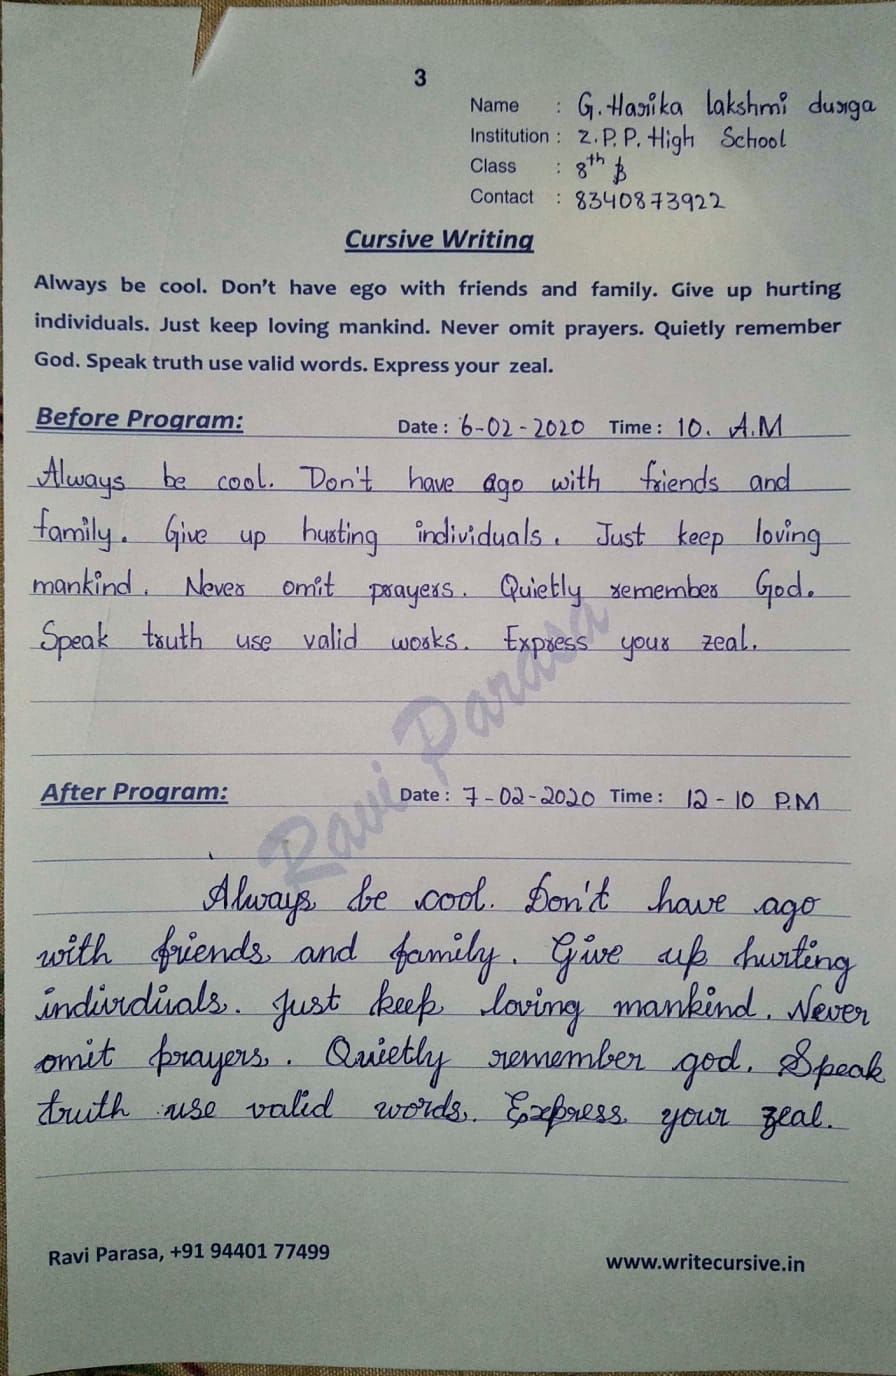 3
Name : G. Harika lakshmi durga
Institution : Z.P.P. High School
Class : 8th B
Contact : 8340873922
Cursive Writing
Always be cool. Don't have ego with friends and family. Give up hurting
individuals. Just keep loving mankind. Never omit prayers. Quietly remember
God. Speak truth use valid words. Express your zeal.
Before Program: Date : 6-02-2020 Time : 10. A.M
Always be cool. Don't have ago with friends and
family. Give up hurting individuals. Just keep loving
mankind. Never omit prayers. Quietly remember God.
Speak truth use valid works. Express your zeal.
Ravi Parasa
After Program: Date : 7-02-2020 Time : 12-10 P.M
Always be cool. Don't have ago
with friends and family. Give up hurting
individuals. Just keep loving mankind. Never
omit prayers. Quietly remember god. Speak
truth use valid words. Express your zeal.
Ravi Parasa, +91 94401 77499
www.writecursive.in